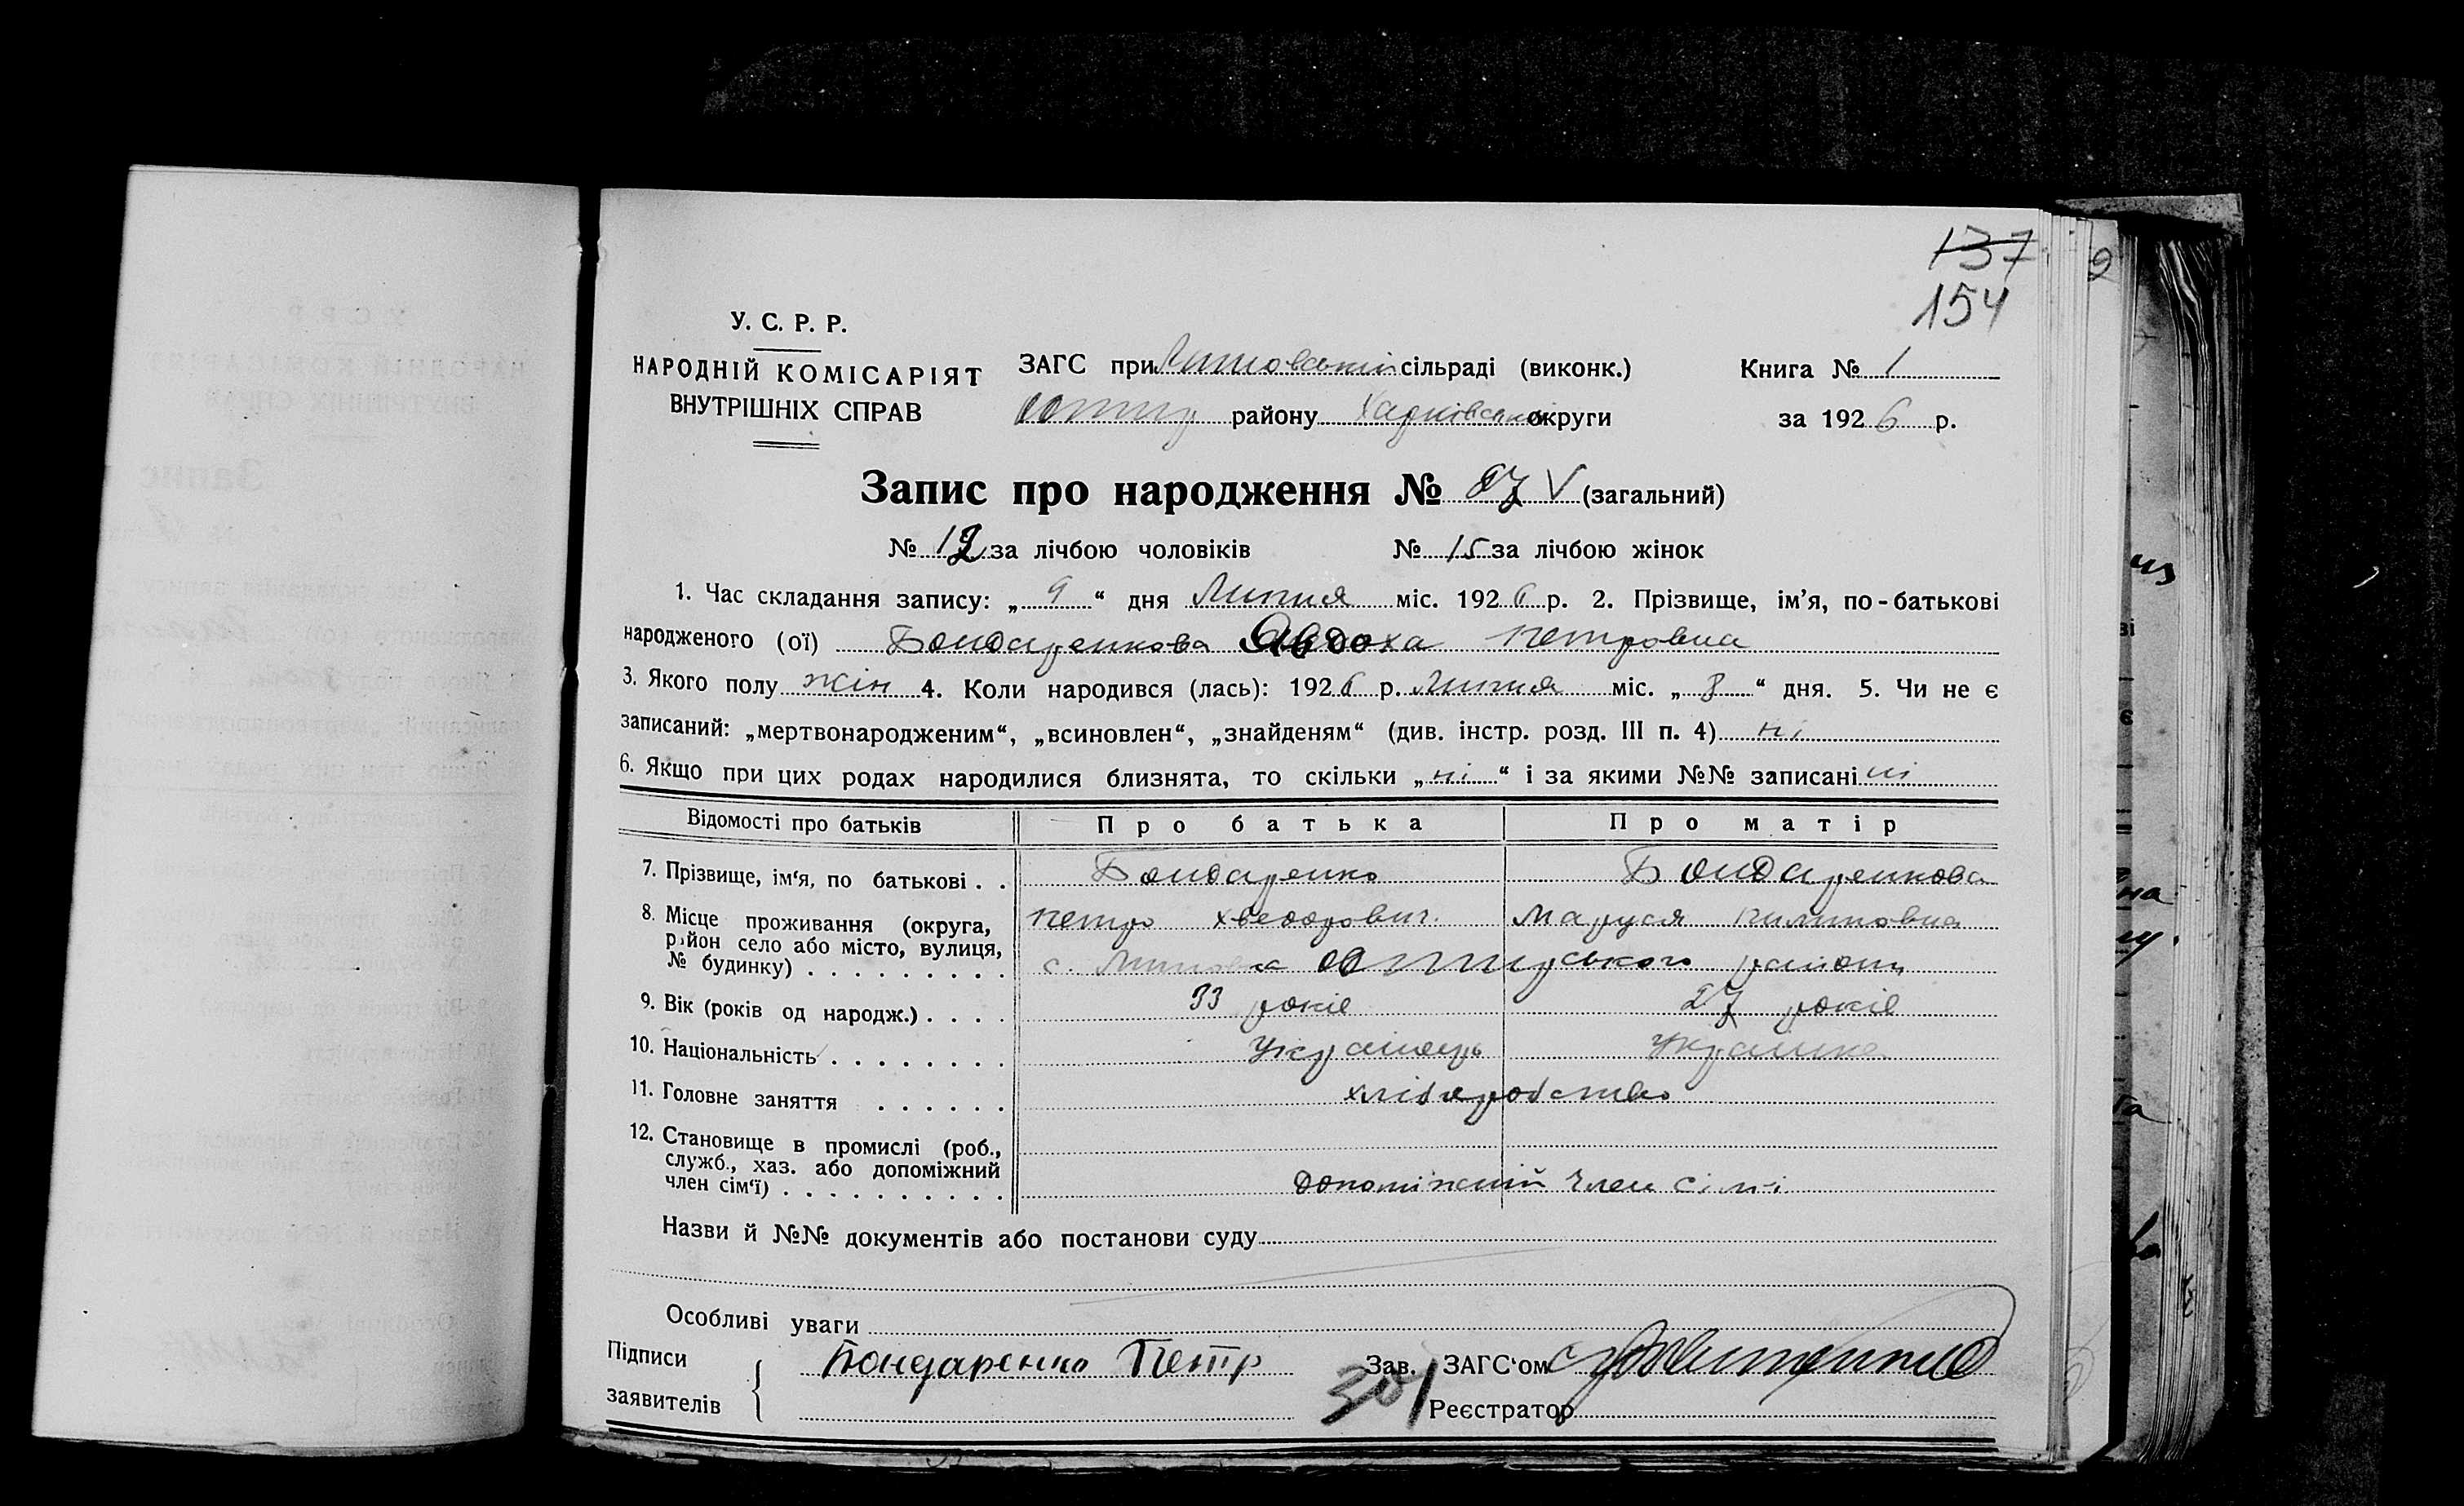 137
154
У. С. Р. Р.
НАРОДНІЙ КОМІСАРІЯТ
ВНУТРІШНІХ СПРАВ
ЗАГС при Липовській сільраді (виконк.)
району Харківської округи
Книга № 1
за 1926 р.
Запис про народження № 27 V (загальний)
№ 12 за лічбою чоловіків № 15 за лічбою жінок
1. Час складання запису: „ 9 “ дня Липня міс. 1926 р. 2. Прізвище, ім’я, по-батькові
народженого (ої) Бондаренкова Авдоха Петровна
3. Якого полу жін 4. Коли народився (лась): 1926 р. Липня міс. „ 8 “ дня. 5. Чи не є
записаний: „мертвонародженим“, „всиновлен“, „знайденям“ (див. інстр. розд. III п. 4) ні
6. Якщо при цих родах народилися близнята, то скільки „ ні “ і за якими №№ записані ні
Відомості про батьків Про батька Про матір
7. Прізвище, ім‘я, по батькові . . Бондаренко Бондаренкова
8. Місце проживання (округа, Петро Хведорович. Маруся Пилиповна
район село або місто, вулиця,
№ будинку) . . . . . . . . . с. Липовка района
9. Вік (років од народж.) . . . . 33 років 27 років
10. Національність . . . . . . . . Українець Українка
11. Головне заняття . . . . . . хліборобство
12. Становище в промислі (роб.,
служб., хаз. або допоміжний
член сім‘ї) . . . . . . . . . . допоміжний член сімі
Назви й №№ документів або постанови суду
Особливі уваги
Підписи
заявителів
Бондаренко Петр
Зав. ЗАГС‘ом
301
Реєстратор